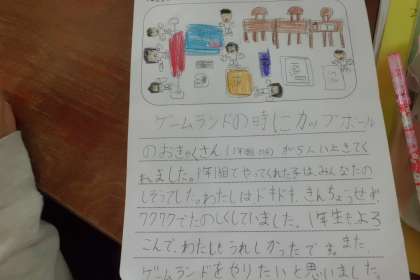 ゲームランドの時にカップボール
のおきゃくさん(1年1組の)がらんいときてく
れました。1年1組でやってくれた子は、みんなたの
しそうでした。わたしはドキドキ、きんちょうせず
ワクワクでたのしくしていました。1年生もよろ
こんで、わたしもうれしかったです。また
ゲームランドをやりたいと思いました。